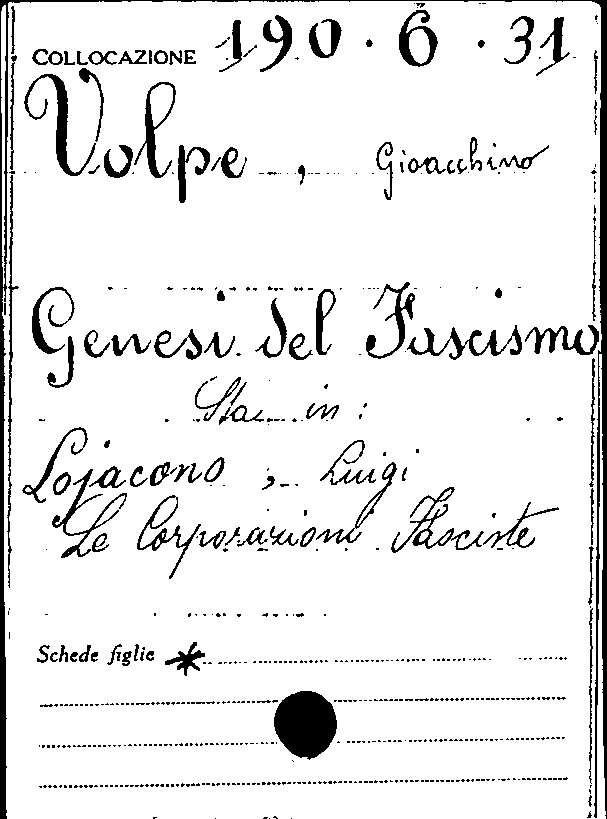 COLLOCAZIONE 190.6.31
Volpe, Gioacchino
Genesi del Fascismo
Sta in:
Lojacono, Luigi
Le Corporazioni Fasciste
Schede figlie *